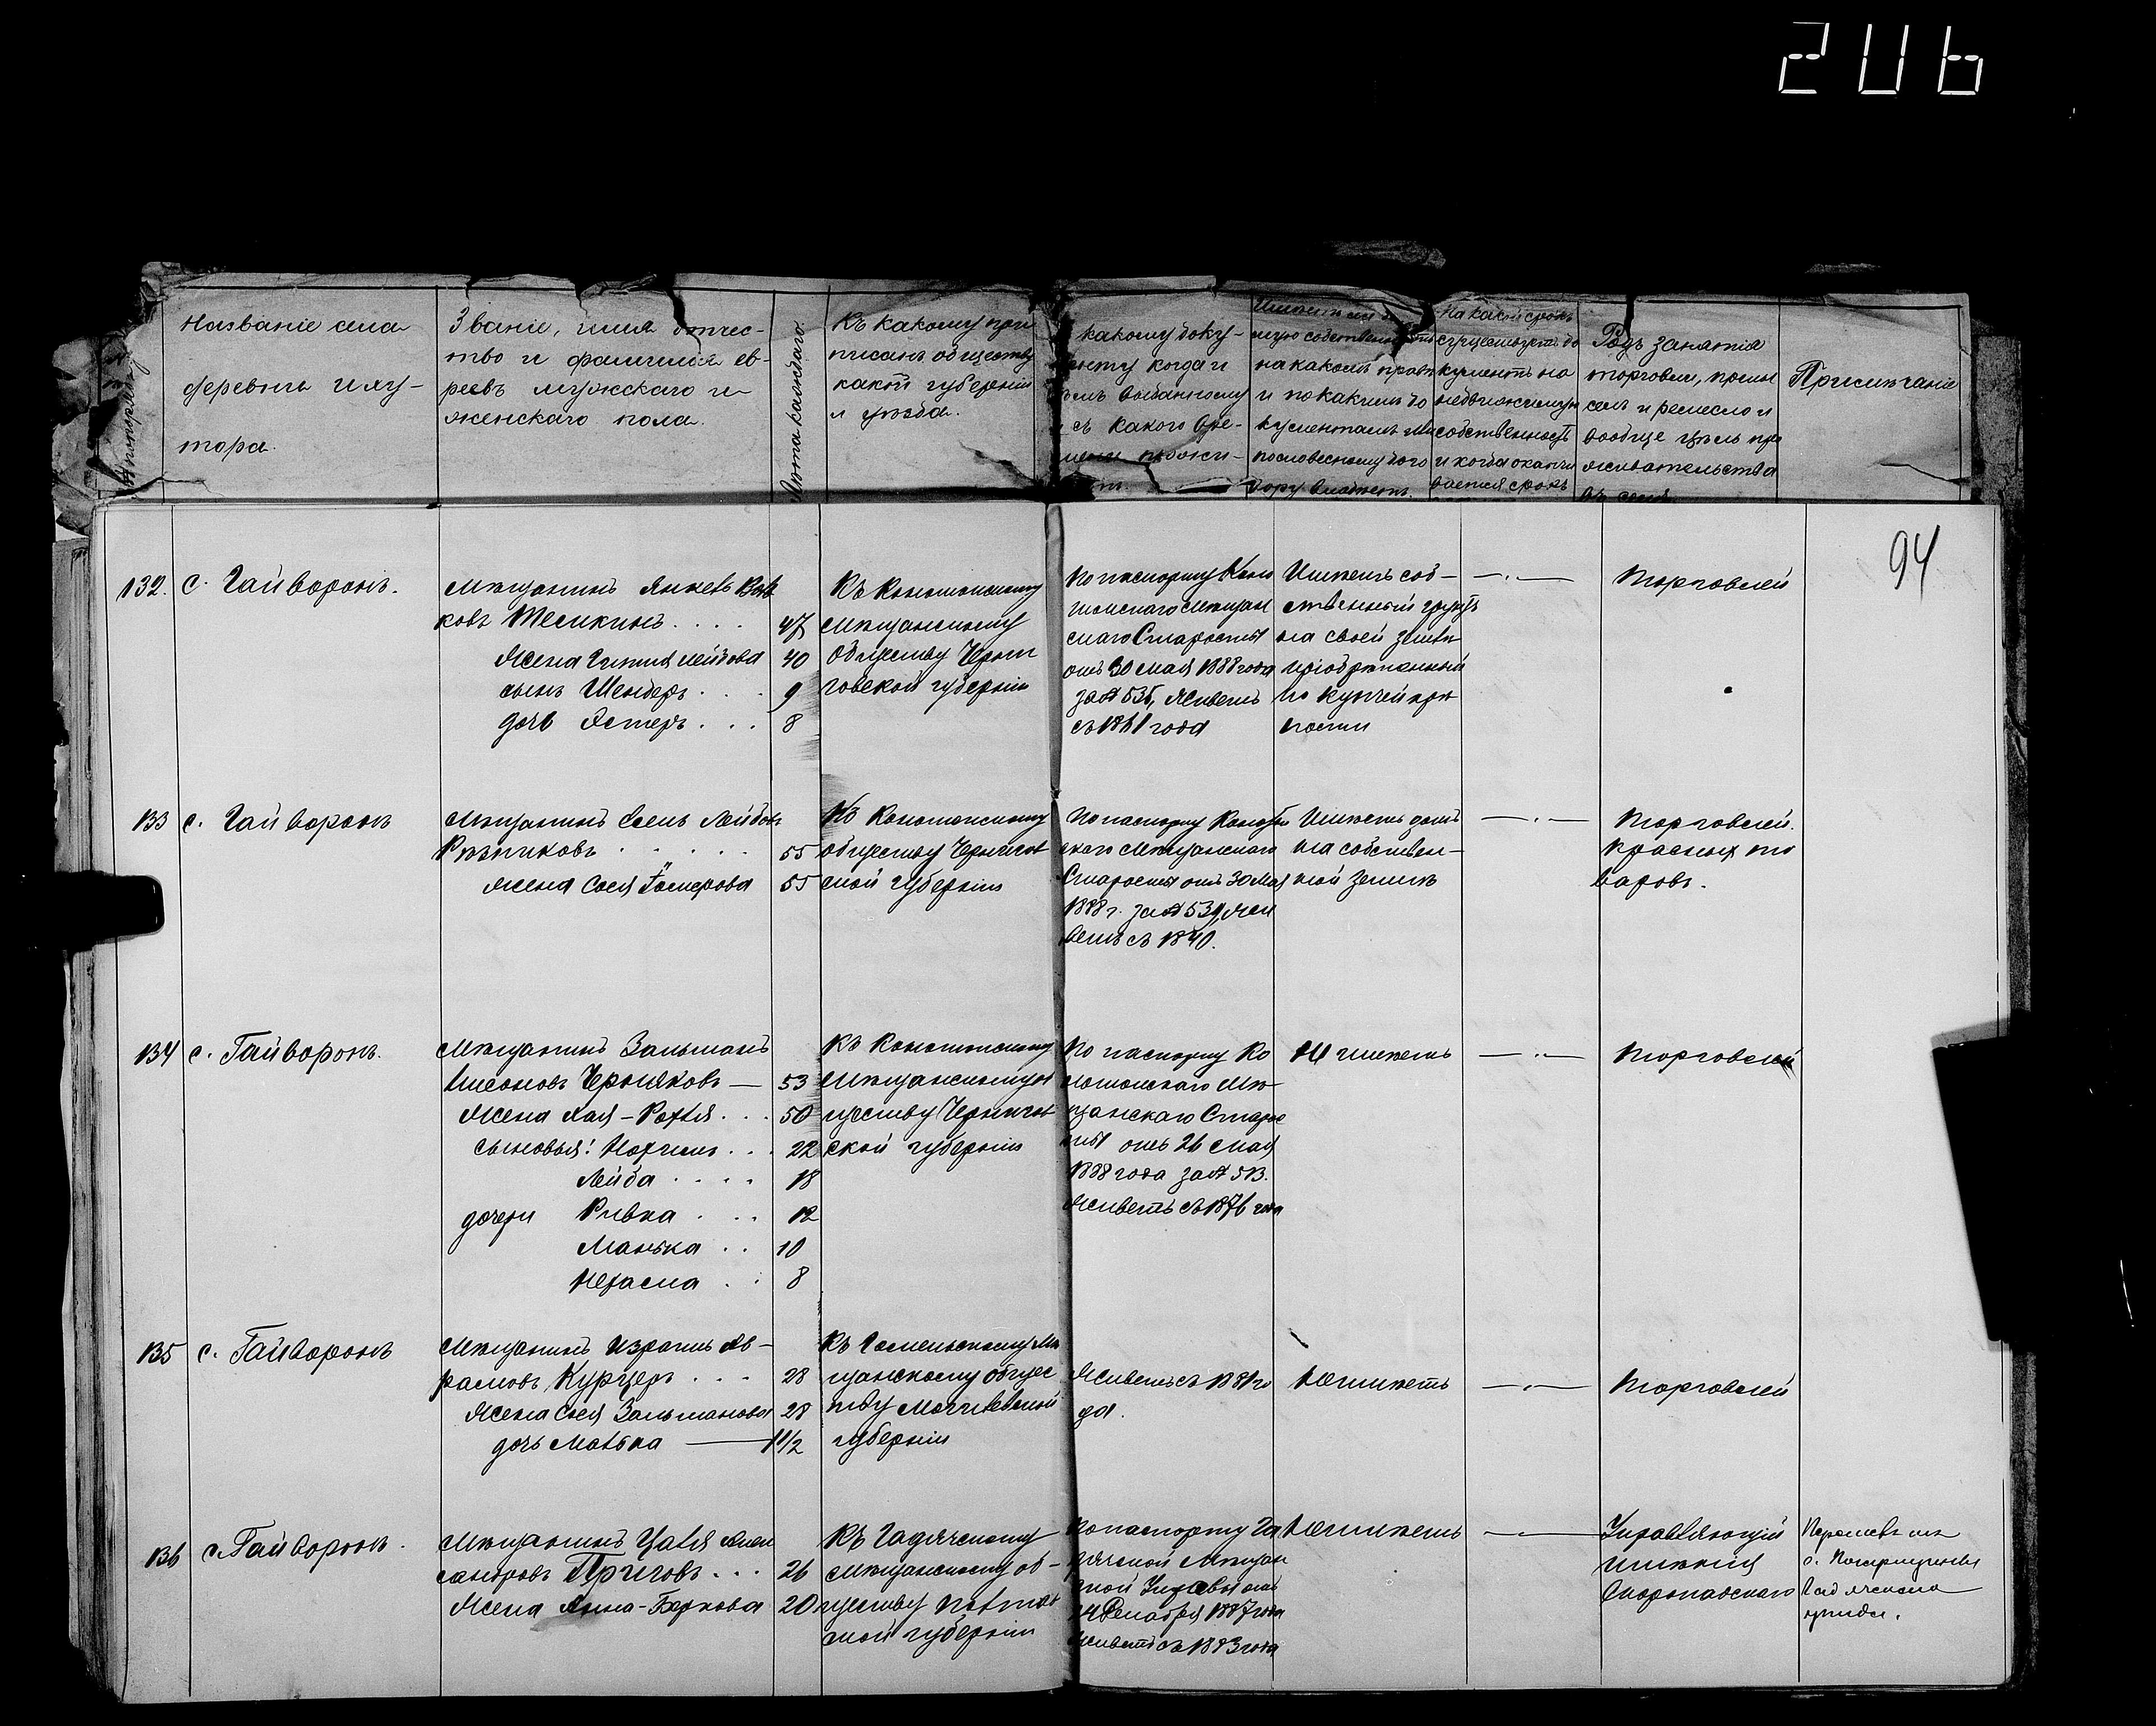 206
№ по порядку
Названіе села
деревни и ху-
тора.
Званіе, имя отчес-
тво и фамилия ев-
реевъ мужскаго и
женскаго пола.
Лета каждаго
Къ какому при
писанъ обществу
какой губерніи
и уезда.
какому доку-
менту когда и
кемъ выданному
и съ какого вре-
мени прожи-
мую собственность
на какомъ праве
и по какимъ до
кументамъ или
по словесному дого
вору владеетъ.
На какой срокъ
существуетъ до
кументъ на
недвижимую
собственность
и когда оканчи
вается срокъ
Родъ занятія
торговли, промы
селъ и ремесло и
вообще цель про
живательства
въ селе
Примечаніе
94
132. с. Гайворонъ.
Мещанинъ Янкевъ Вов
ковъ Шесикинъ . . . . 47
Жена Лейбова 40
сынъ Шендеръ . . . 9
дочь Эстеръ . . . 8
Къ Конотопскому
мещанскому
обществу Черни
говской губерніи
По паспорту Коно
топскаго мещан
скаго Старосты
отъ 30 Мая 1888 года
за № 535, живетъ
съ 1861 года
Имеетъ соб-
ственный грунтъ
на своей земле
пріобретенный
по купчей кре
пости
—.—
Торговлей
133 с. Гайворонъ
Мещанинъ Лейбовъ
Резниковъ . . . . . 55
жена Сося 55
Къ Конотопскому
обществу Чернигов
ской губерніи
По паспорту Конотоп
скаго Мещанскаго
Старосты отъ 30 Мая
1888 г. за № 539, жи
ветъ съ 1840.
Имеетъ домъ
на собствен-
ной земле
—.—
Торговлей.
красныхъ то
варовъ.
134 с. Гайворонъ.
Мещанинъ Зальманъ
Черняковъ — 53
Жена Хая-Рохля . . . 50
сыновья: Нохимъ . . . 22
Лейба . . . . 18
дочери Ривка . . . 12
Манька . . 10
Нехама . . 8
Къ Конотопскому
Мещанскому об
ществу Чернигов
ской губерніи
По паспорту Ко
нотопскаго Ме-
щанскаго Старос
ты отъ 26 Мая
1888 года за № 513.
Живетъ съ 1876 года
Не имеетъ
—.—
Торговлей
135 с. Гайворонъ
Мещанинъ Израиль Аб-
рамовъ Курцеръ . . . 28
Жена Сося Зальманова 28
дочь Матька — 1 1/2
Къ Гомельскому Ме
щанскому общес
тву Могилевской
губерніи
Живетъ съ 1881 го
да.
Не имеетъ
—.—
Торговлей
136 с. Гайворонъ.
Мещанинъ Алек
сандровъ Приговъ . . . 26
Жена Анна-Беркова 20
Къ Гадячскому
мещанскому об-
ществу Полтав
ской губерніи
По паспорту Га
дячской мещан
ской Управы отъ
14 Декабря 1887 года
Живетъ съ 1883 года
Не имеетъ
—.—
Управляющій
именія
Скоропадскаго
Гадячскаго
уезда.